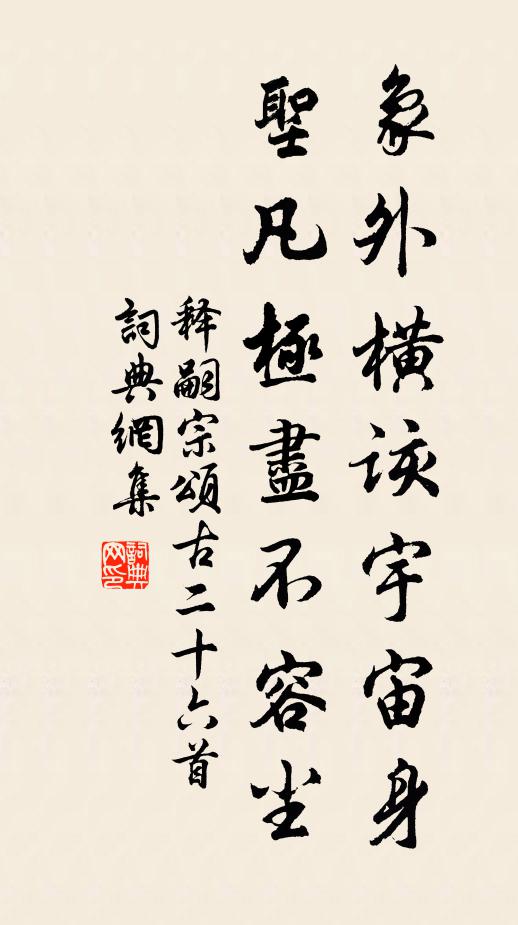 象外橫該宇宙身
聖凡極盡不容尘
释嗣宗頌古二十六首
詞典網集
詞典网印